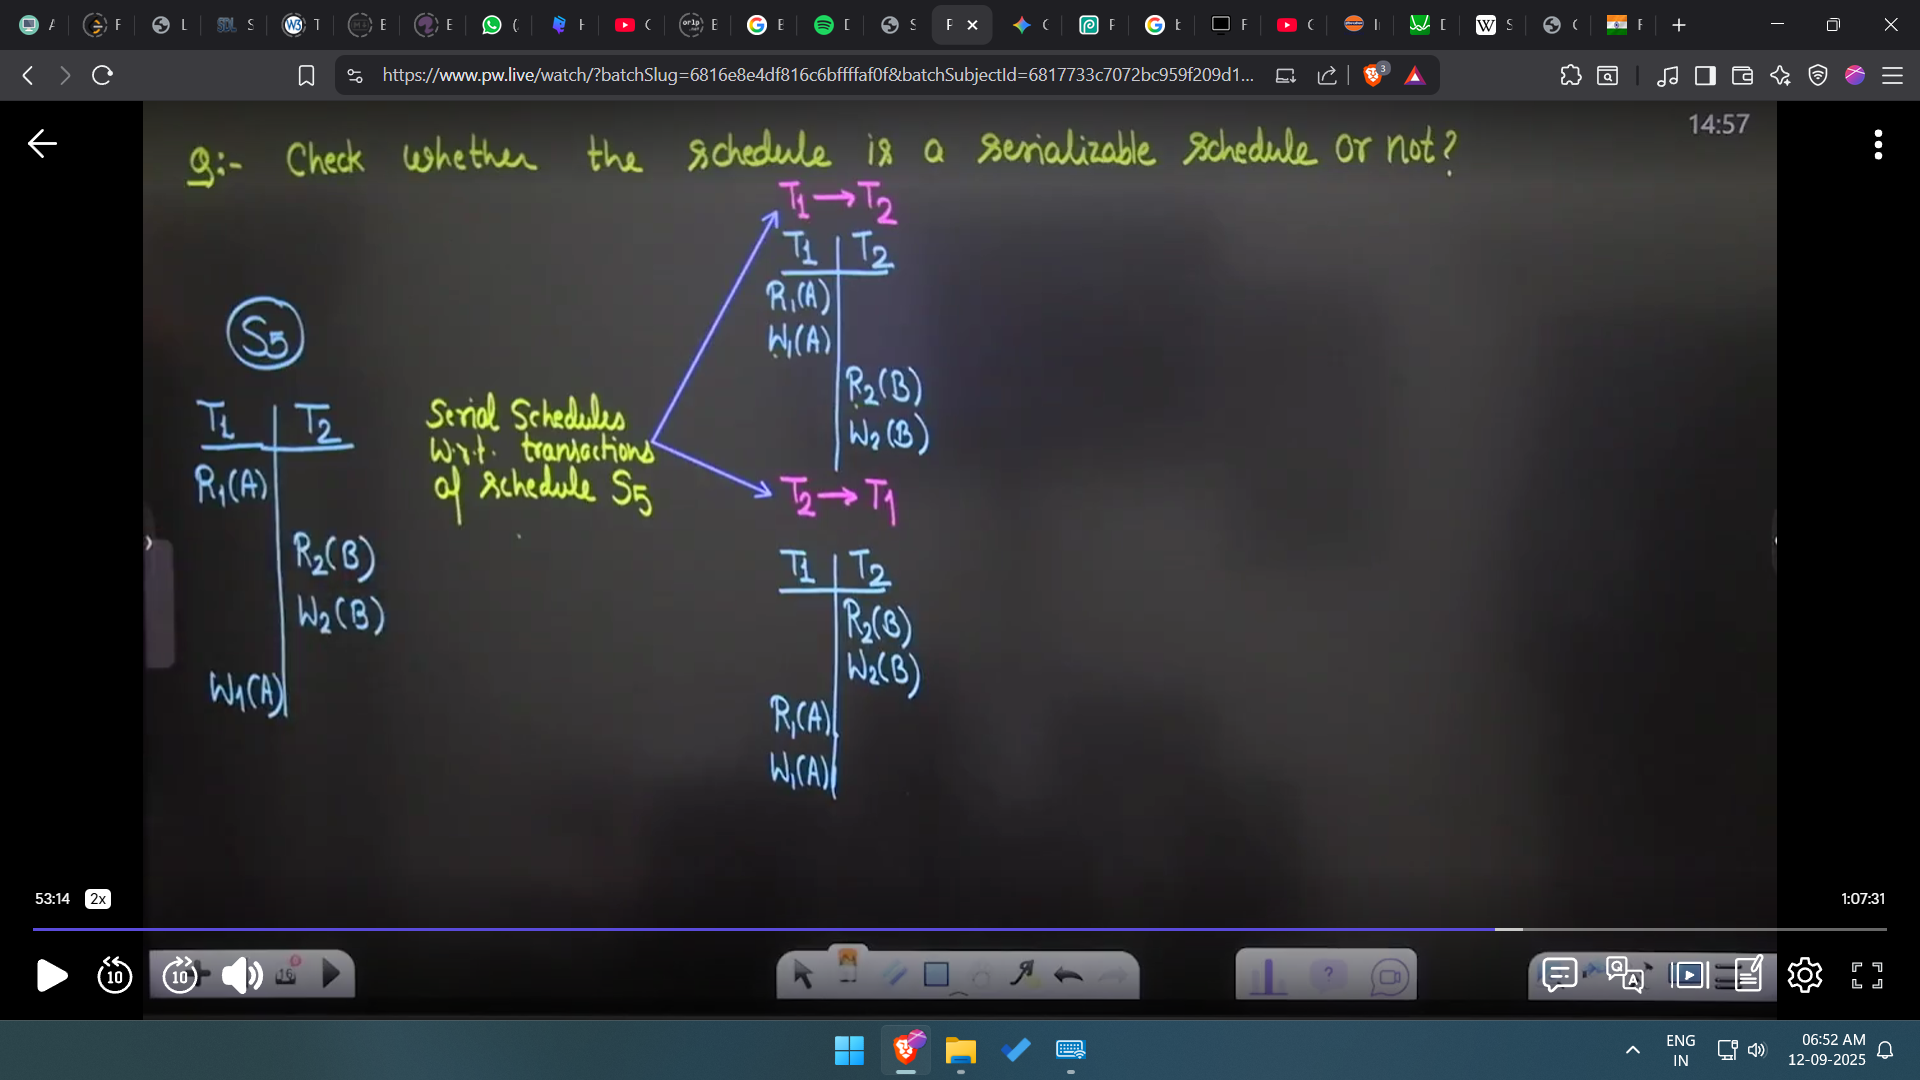 https://www.pw.live/watch/?batchSlug=6816e8e4df816c6bffffaf0f&batchSubjectId=6817733c7072bc959f209d1...
3
14:57
Q:- Check whether the schedule is a serializable schedule or not?
T1 → T2
T1 T2
R1(A)
W1(A)
R2(B)
W2(B)
S5
T1 T2
R1(A)
R2(B)
W2(B)
W1(A)
Serial Schedules
w.r.t. transactions
of schedule S5
T2 → T1
T1 T2
R2(B)
W2(B)
R1(A)
W1(A)
53:14 2x
1:07:31
10 10
16
ENG
IN
06:52 AM
12-09-2025